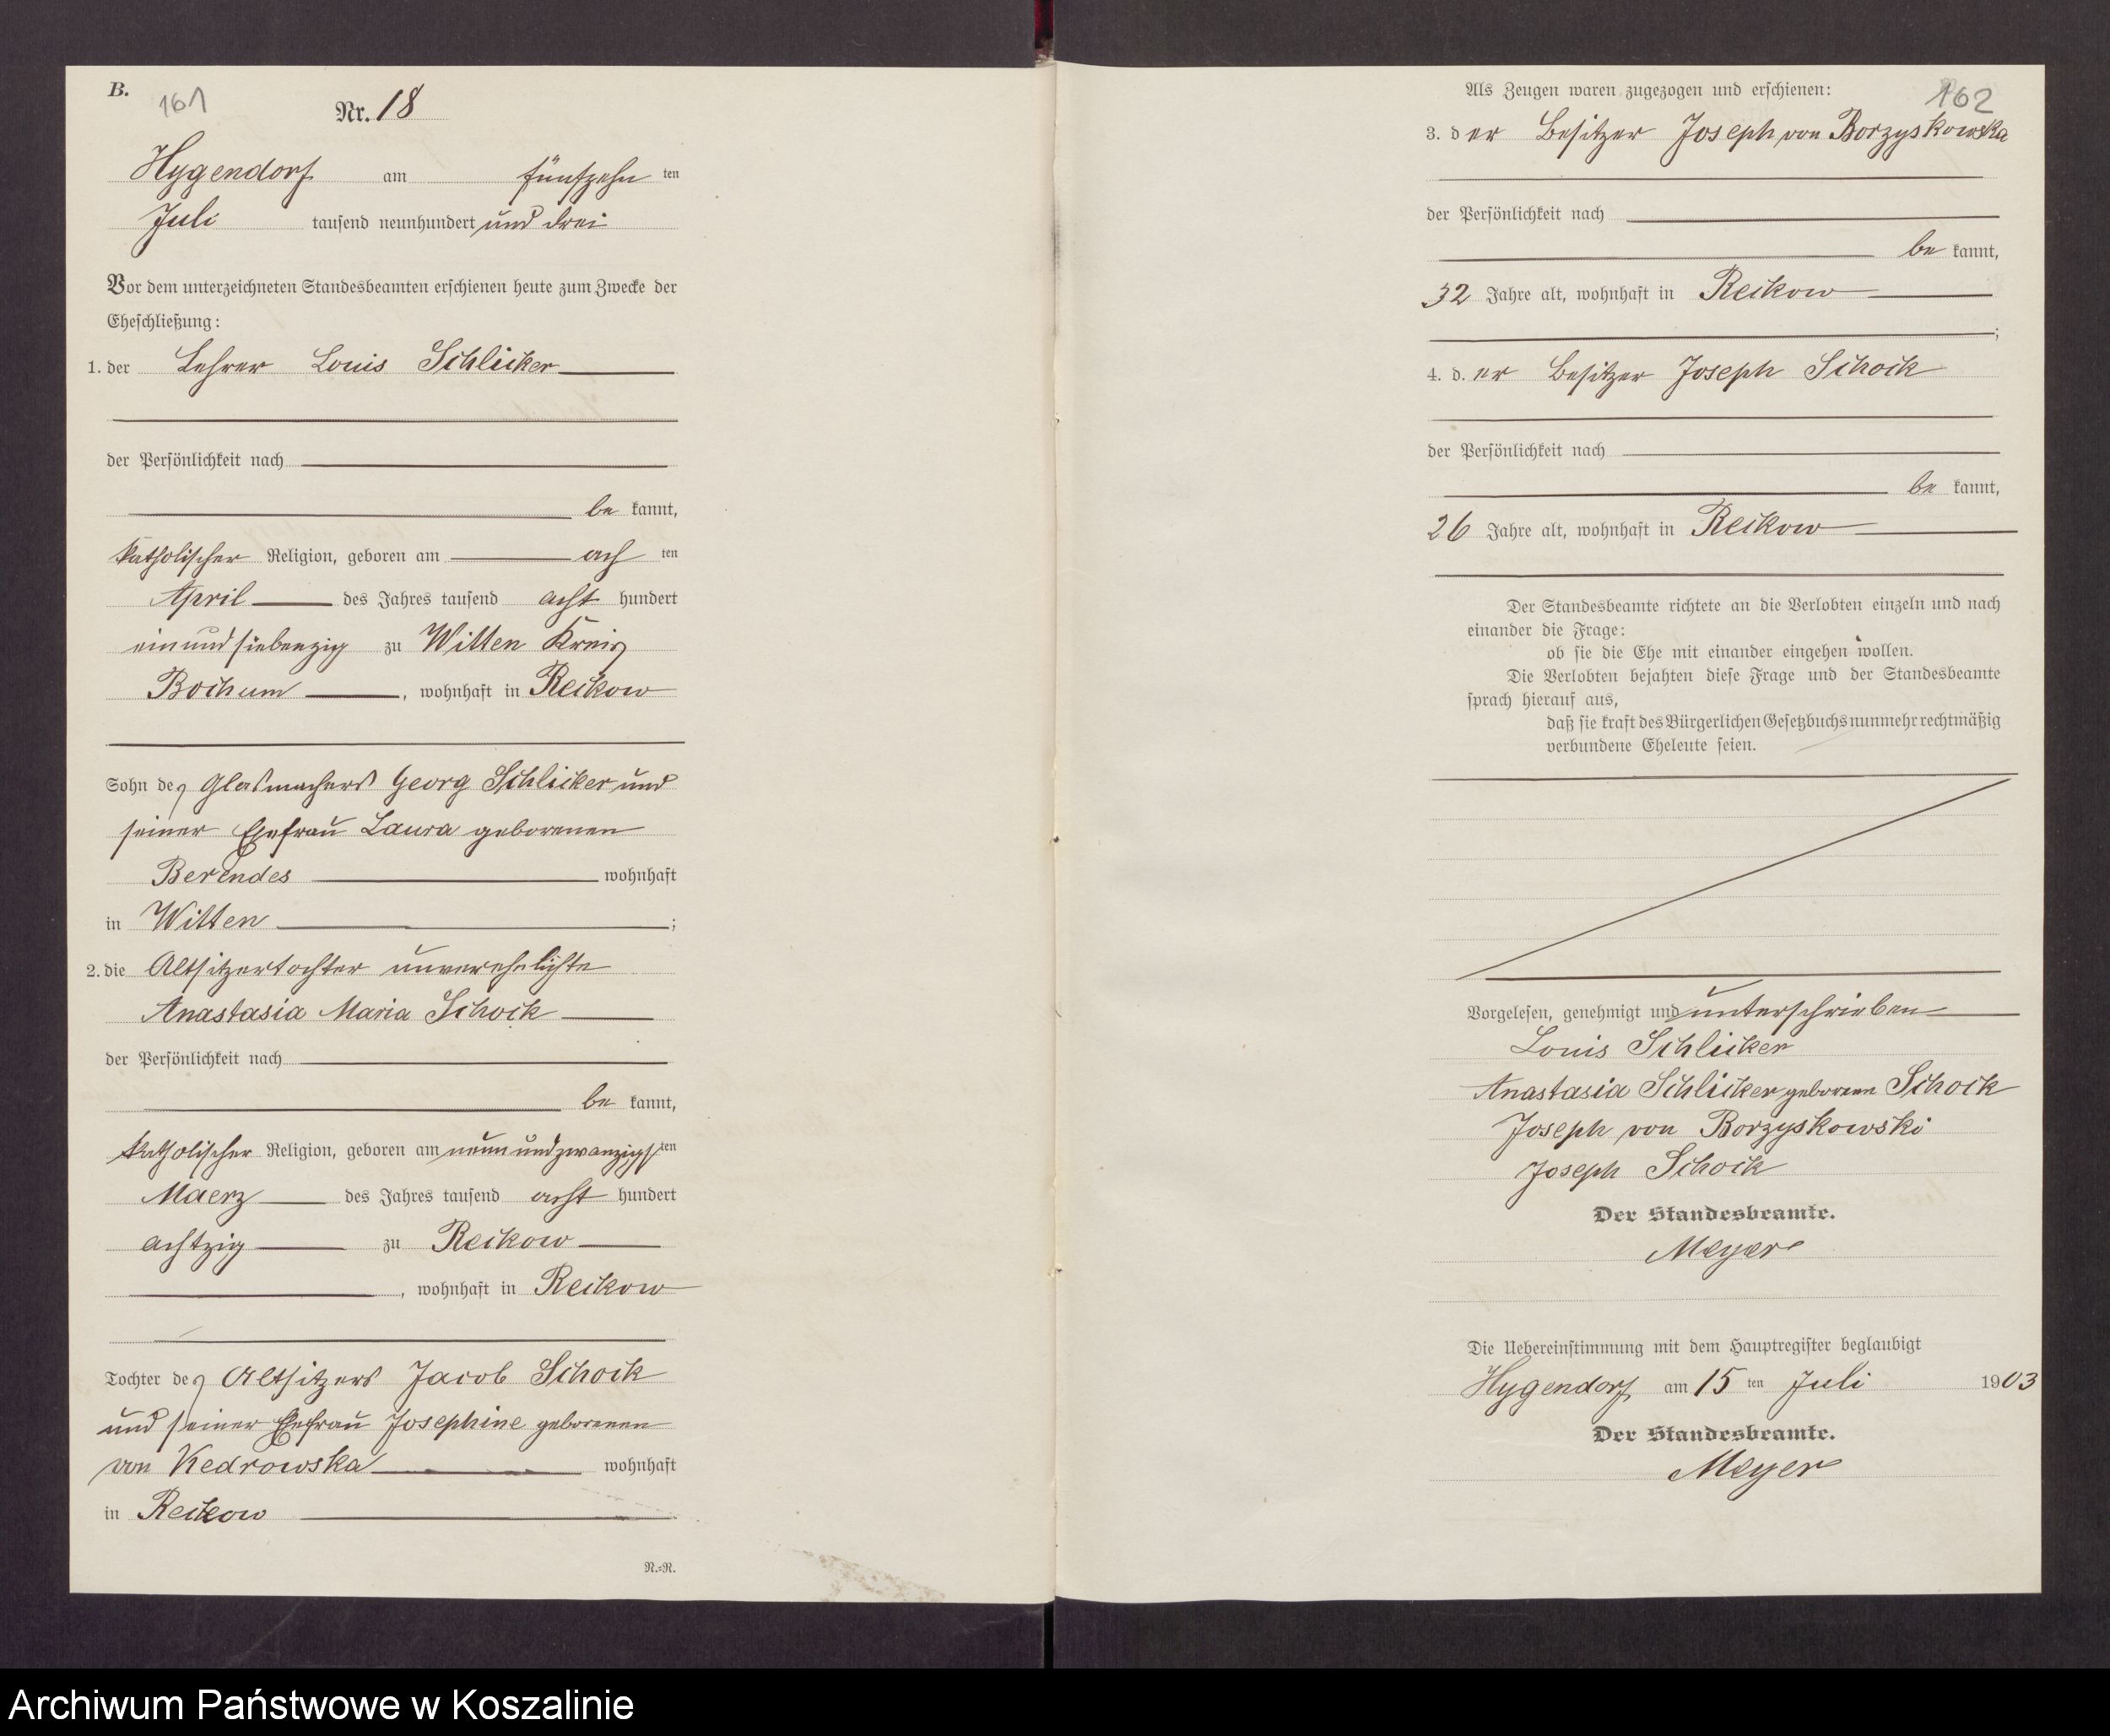 B.
161
Nr. 18
Hygendorf am fünfzehn ten
Juli tausend neunhundert und drei
Vor dem unterzeichneten Standesbeamten erschienen heute zum Zwecke der
Eheschließung:
1. der Lehrer Louis Schlicker
der Persönlichkeit nach
be kannt,
katholischer Religion, geboren am ach ten
April des Jahres tausend acht hundert
einundsiebenzig zu Witten Kreis
Bochum, wohnhaft in Reckow
Sohn des Glasmachers Georg Schlicker und
seiner Ehefrau Laura geborenen
Berendes wohnhaft
in Witten ;
2. die Altsitzertochter unverehelichte
Anastasia Maria Schock
der Persönlichkeit nach
be kannt,
katholischer Religion, geboren am neunundzwanzigsten
Maerz des Jahres tausend acht hundert
achtzig zu Reckow
, wohnhaft in Reckow
Tochter des Altsitzers Jacob Schock
und seiner Ehefrau Josephine geborenen
von Kedrowska wohnhaft
in Reckow
N.=N.
Als Zeugen waren zugezogen und erschienen:
162
3. der Besitzer Joseph von Borzyskowska
der Persönlichkeit nach
be kannt,
32 Jahre alt, wohnhaft in Reckow
;
4. d. er Besitzer Joseph Schock
der Persönlichkeit nach
be kannt,
26 Jahre alt, wohnhaft in Reckow
Der Standesbeamte richtete an die Verlobten einzeln und nach
einander die Frage:
ob sie die Ehe mit einander eingehen wollen.
Die Verlobten bejahten diese Frage und der Standesbeamte
sprach hierauf aus,
daß sie kraft des Bürgerlichen Gesetzbuchs nunmehr rechtmäßig
verbundene Eheleute seien.
Vorgelesen, genehmigt und unterschrieben
Louis Schlicker
Anastasia Schlicker geborene Schock
Joseph von Borzyskowski
Joseph Schock
Der Standesbeamte.
Meyer
Die Uebereinstimmung mit dem Hauptregister beglaubigt
Hygendorf am 15 ten Juli 1903
Der Standesbeamte.
Meyer
Archiwum Państwowe w Koszalinie